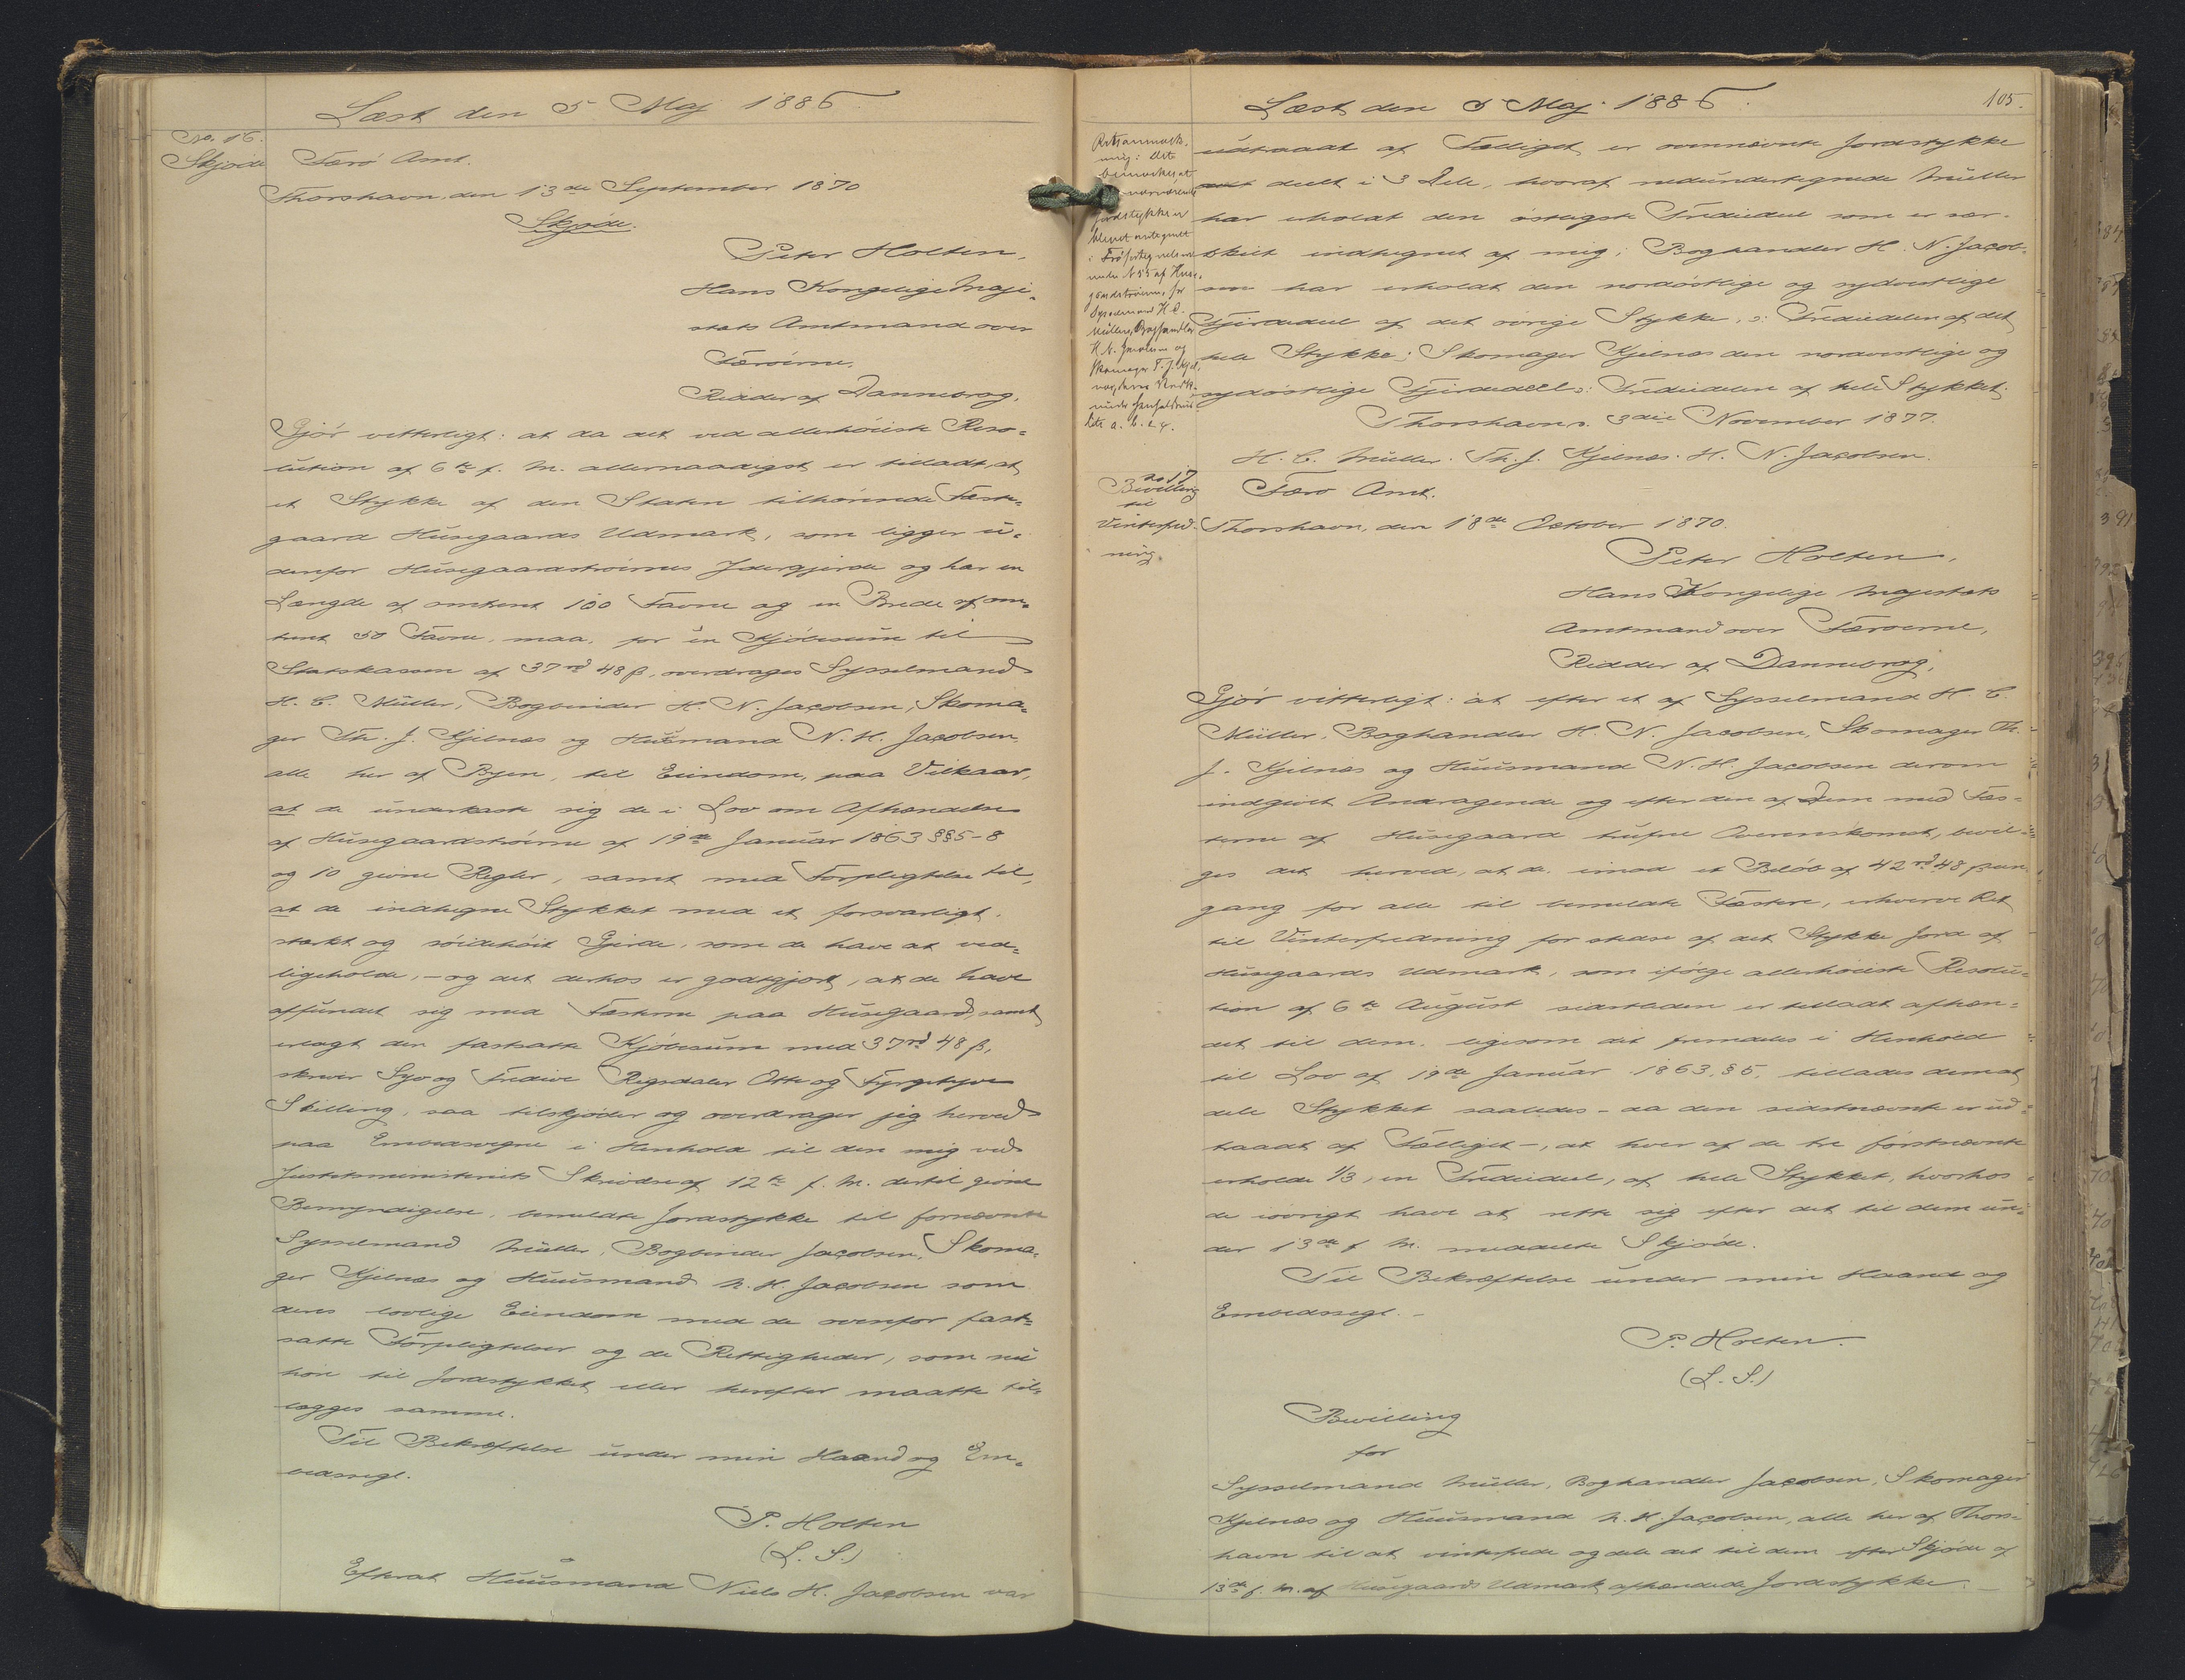 Læst den 5 Maj 1886.
No. 16.
Skjøde
Færø Amt.
Thorshavn, den 13de September 1870
Skjøde.
Peter Holten,
Hans Kongelige Maje-
stæts Amtmand over
Færøerne,
Ridder af Dannebrog,
Gjør vitterligt: at da det ved allerhøieste Reso-
lution af 6te f. M. allernaadigst er tilladt, at
et Stykke af den Staten tilhørende Fæste-
gaard Husegaards Udmark, som ligger u-
denfor Husegaardstrøernes Ydergjerde og har en
Længde af omtrent 100 Favne og en Brede af om-
trent 50 Favne, maa, for en Kjøbesum til
Statskassen af 37 rd 48 ß, overdrages Sysselmand
H. C. Müller, Bogbinder H. N. Jacobsen, Skoma-
ger Th. J. Kjelnæs og Huusmand N. H. Jacobsen,
alle her af Byen, til Eiendom, paa Vilkaar,
at de underkaste sig de i Lov om Afhændelse
af Husegaardstrøerne af 19de Januar 1863 §§ 5-8
og 10 givne Regler, samt med Forpligtelse til,
at de indhegne Stykket med et forsvarligt,
stærkt og søidehøit Gjerde, som de have at ved-
ligeholde, - og det derhos er godtgjort, at de have
affundet sig med Fæsterne paa Husegaard, samt
erlagt den fastsatte Kjøbesum med 37 rd 48 ß,
skriver Syv og Tredive Rigsdaler Otte og Fyrgetyve
Skilling, saa tilskjøder og overdrager jeg herved
paa Embedsvegne i Henhold til den mig ved
Justitsministeriets Skrivelse af 12te f. M. dertil givne
Bemyndigelse, bemeldte Jordstykke til fornævnte
Sysselmand Müller, Bogbinder Jacobsen, Skoma-
ger Kjelnæs og Huusmand N. H. Jacobsen som
deres lovlige Eiendom med de ovenfor fast-
satte Forpligtelser og de Rettigheder, som nu
høre til Jordstykket eller herefter maatte til-
lægges samme.
Til Bekræftelse under min Haand og Em-
bedssegl.
P. Holten
(L. S.)
Efterat Huusmand Niels H. Jacobsen var
Læst den 5 Maj 1886.
105.
Retsanmærk-
ning: Det
bemærkes, at
nærværende
Jordstykke er
blevet
i
under N 55 af Huse-
gaardstrøerne, for
Sysselmand H. C.
Müller, Boghandler
H. N. Jacobsen og
Skomager T. J. Kjel-
næs,
under
litr. a. b. c.
udtraadt af Fælliget er ovennævnte Jordstykke
deelt i 3 Dele, hvoraf nedundertegnede Müller
har erholdt den østligste Trediedeel som er sær-
skilt indhegnet af mig; Boghandler H. N. Jacob-
sen har erholdt den nordøstlige og sydvestlige
Fjirdedeel af det øvrige Stykke, ɔ: Trediedelen af det
hele Stykke; Skomager Kjelnæs den nordvestlige og
sydøstlige Fjirdedeel ɔ: Trediedelen af hele Stykket.
Thorshavn d. 3die November 1877.
H. C. Müller. Th. J. Kjelnæs. H. N. Jacobsen.
No 17
Bevilling
til
Vinterfred-
ning.
Færø Amt.
Thorshavn, den 18de October 1870.
Peter Holten,
Hans Kongelige Majestæts
Amtmand over Færøerne,
Ridder af Dannebrog,
Gjør vitterligt: at efter et af Sysselmand H. C.
Müller, Boghandler H. N. Jacobsen, Skomager Th.
J. Kjelnæs og Huusmand N. H. Jacobsen derom
indgivet Andragende og efter den af dem med Fæs-
terne af Husegaard trufne Overenskomst, bevil-
ges det herved, at de imod et Beløb af 42 rd 48 ß een-
gang for alle til bemeldte Fæstere, erhverve Ret
til Vinterfredning for stedse af det Stykke Jord af
Husegaards Udmark, som ifølge allerhøieste Resolu-
tion af 6te August sidstleden er tilladt afhæn-
det til dem, ligesom det fremdeles i Henhold
til Lov af 19de Januar 1863, § 5, tillades dem at
dele Stykket saaledes - da den sidstnævnte er ud-
traadt af Fælliget -, at hver af de tre førstnævnte
erholde 1/3, en Trediedeel, af hele Stykket, hvorhos
de iøvrigt have at rette sig efter det til dem un-
der 13de f. M. meddelte Skjøde.
Til Bekræftelse under min Haand og
Embedssegl. -
P. Holten.
(L. S.)
Bevilling
for
Sysselmand Müller, Boghandler Jacobsen, Skomager
Kjelnæs og Huusmand N. H. Jacobsen, alle her af Thors-
havn til at vinterfrede og dele det til dem efter Skjøde af
13de f. M. af Husegaards Udmark afhændede Jordstykke.